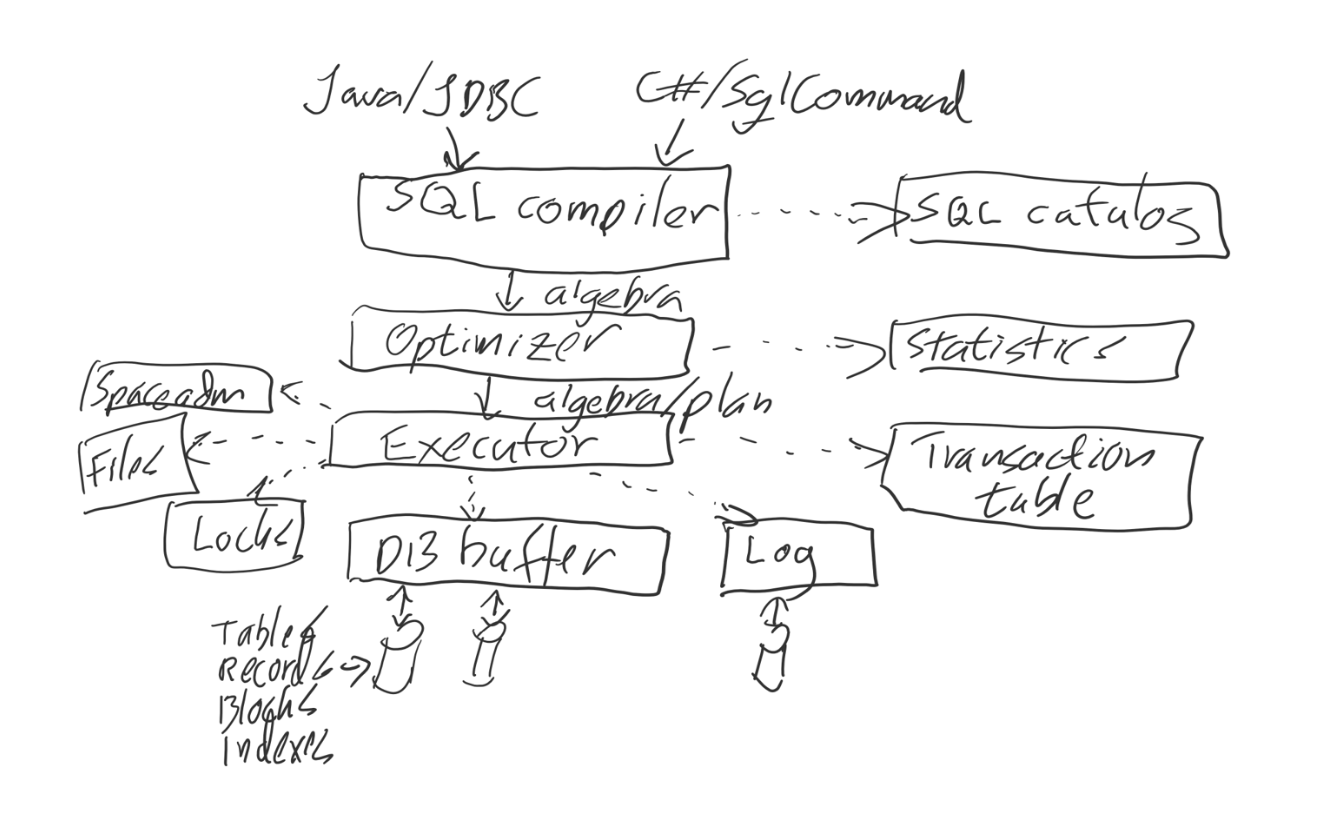 Java/JDBC
C#/SqlCommand
SQL compiler
SQL catalog
algebra
Optimizer
Statistics
algebra/plan
Spaceadm
Files
Locks
Executor
Transaction
table
DB buffer
Log
Tables
Records
Blocks
Indexes